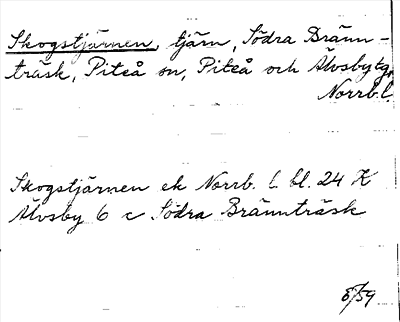 Skogstjärnen, tjärn, Södra Bränn-
träsk, Piteå sn, Piteå och Älvsby tg,
Norrb. l.
Skogstjärnen ek Norrb. l. bl. 24 K
Älvsby 6 c Södra Brännträsk
8/59